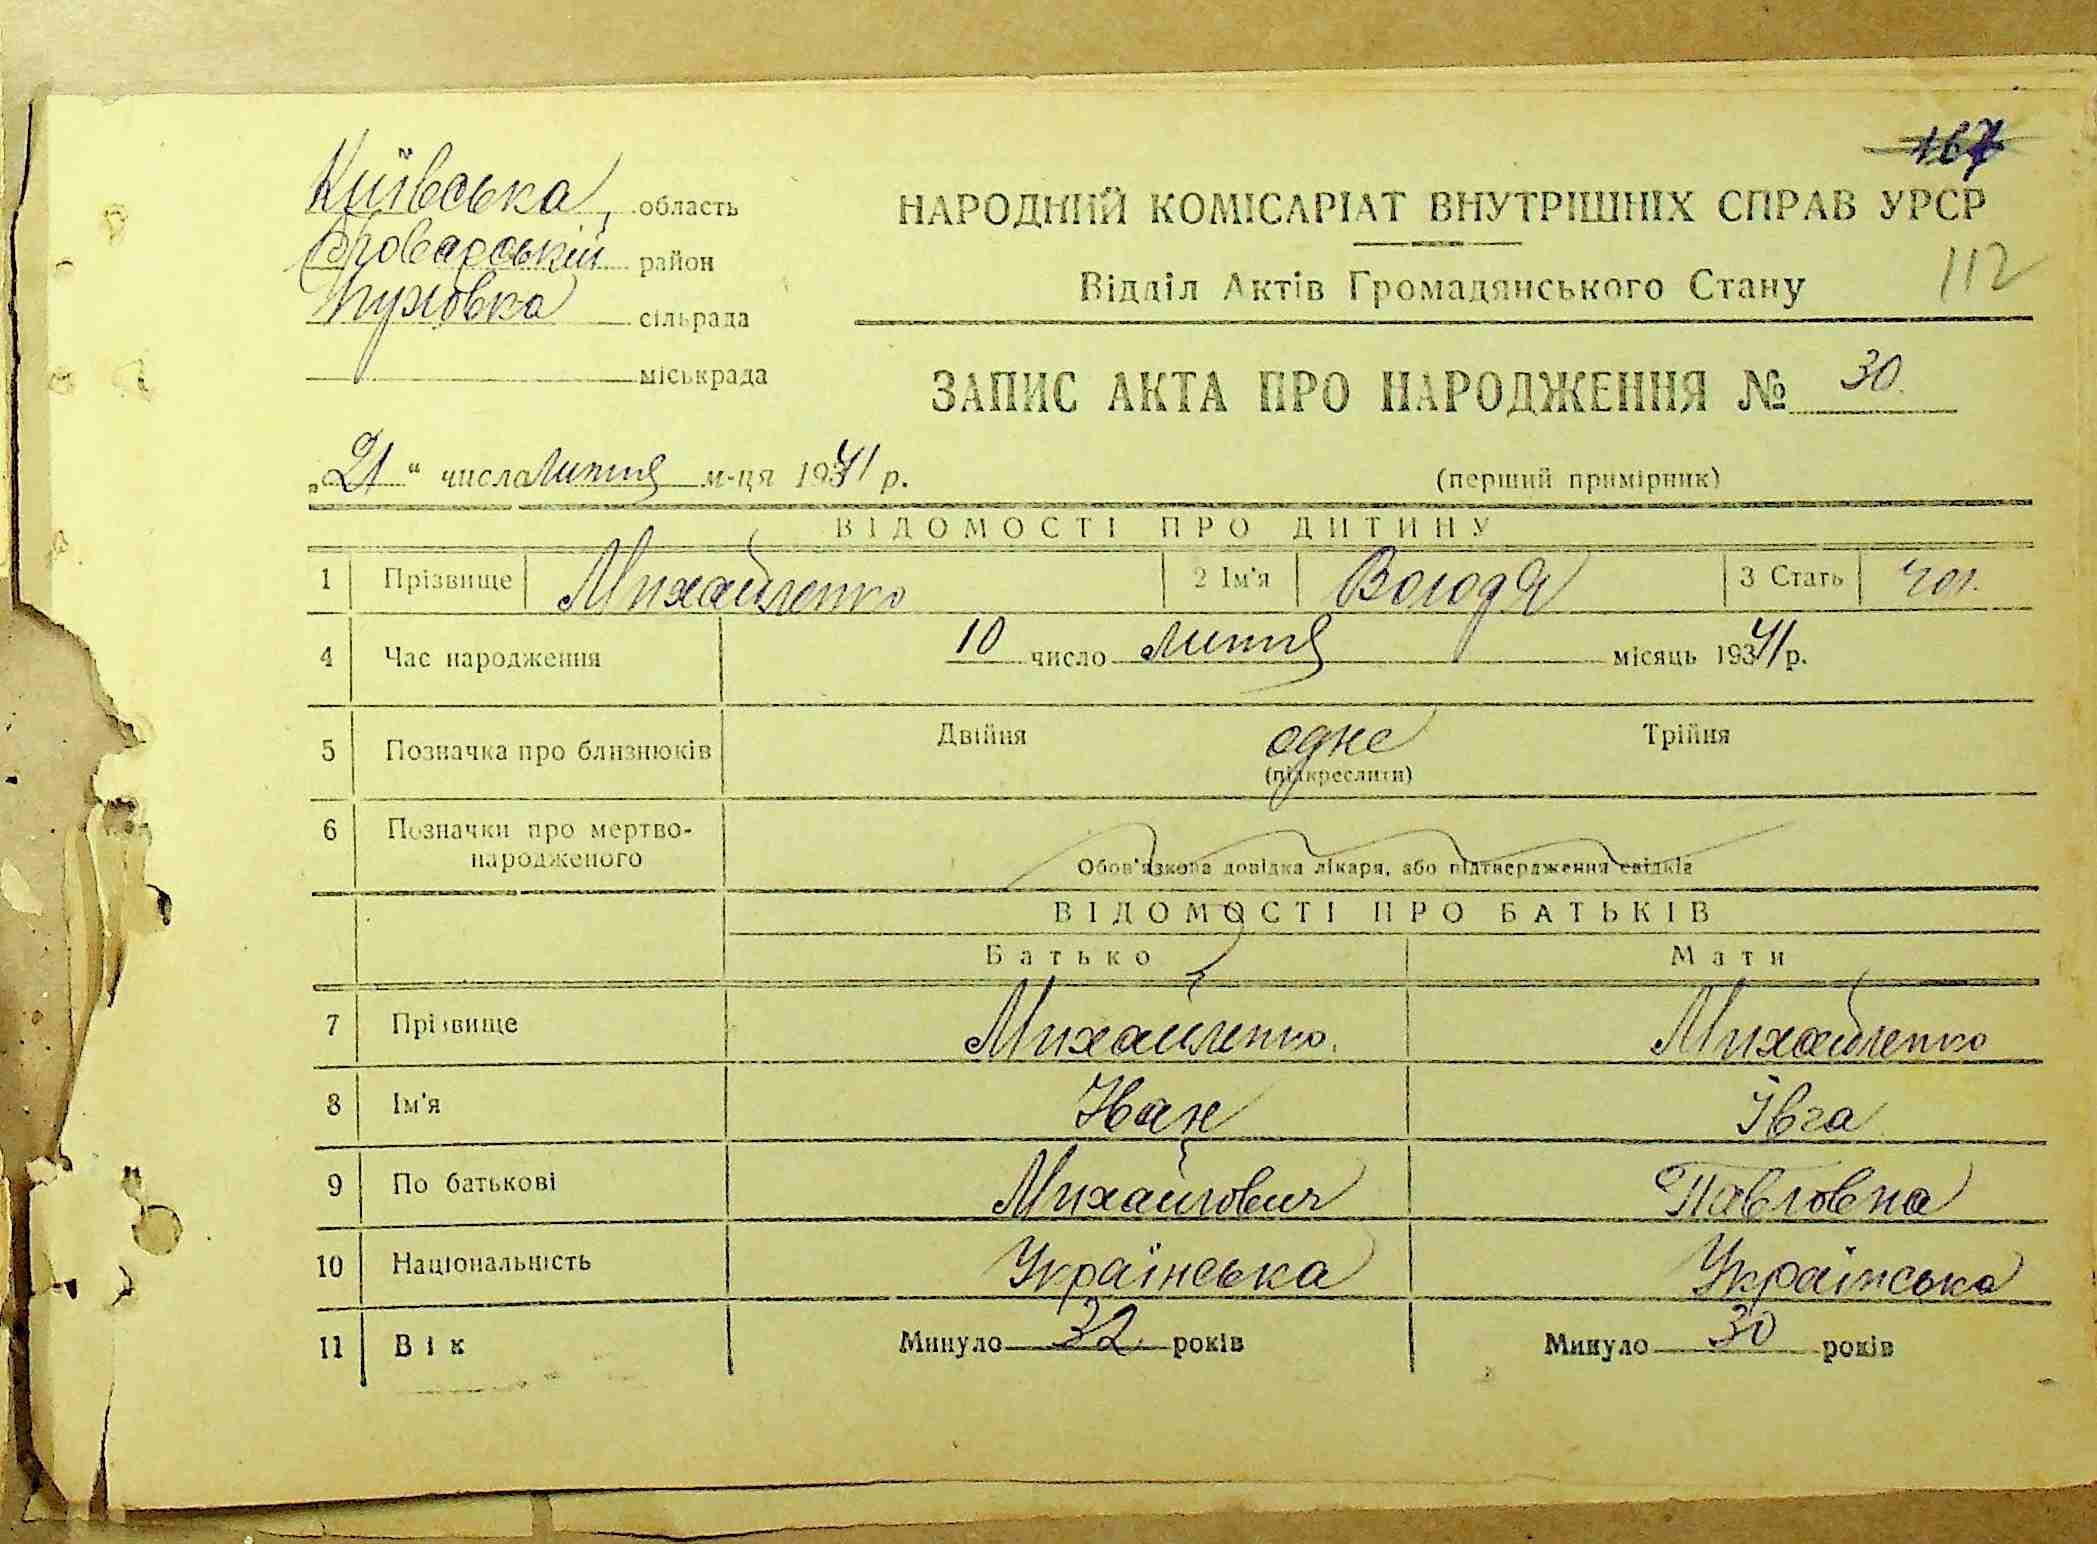 167
Київська область
Броварський район
Пуховка сільрада
міськрада
НАРОДНИЙ КОМІСАРІАТ ВНУТРІШНІХ СПРАВ УРСР
Відділ Актів Громадянського Стану
112
ЗАПИС АКТА ПРО НАРОДЖЕННЯ № 30.
„21“ числа лютня м-ця 1941 р.
(перший примірник)
ВІДОМОСТІ ПРО ДИТИНУ
1 Прізвище Михайленко 2 Ім'я Володя 3 Стать чол.
4 Час народження 10 число лютня місяць 1941 р.
5 Позначка про близнюків Двійня одне Трійня
(підкреслити)
6 Позначки про мертво-
народженого
Обов'язкова довідка лікаря, або підтвердження свідків
ВІДОМОСТІ ПРО БАТЬКІВ
Батько Мати
7 Прізвище Михайленко. Михайленко
8 Ім'я Іван Івга
9 По батькові Михайлович Павловна
10 Національність Українська Українська
11 Вік Минуло 32 років Минуло 30 років